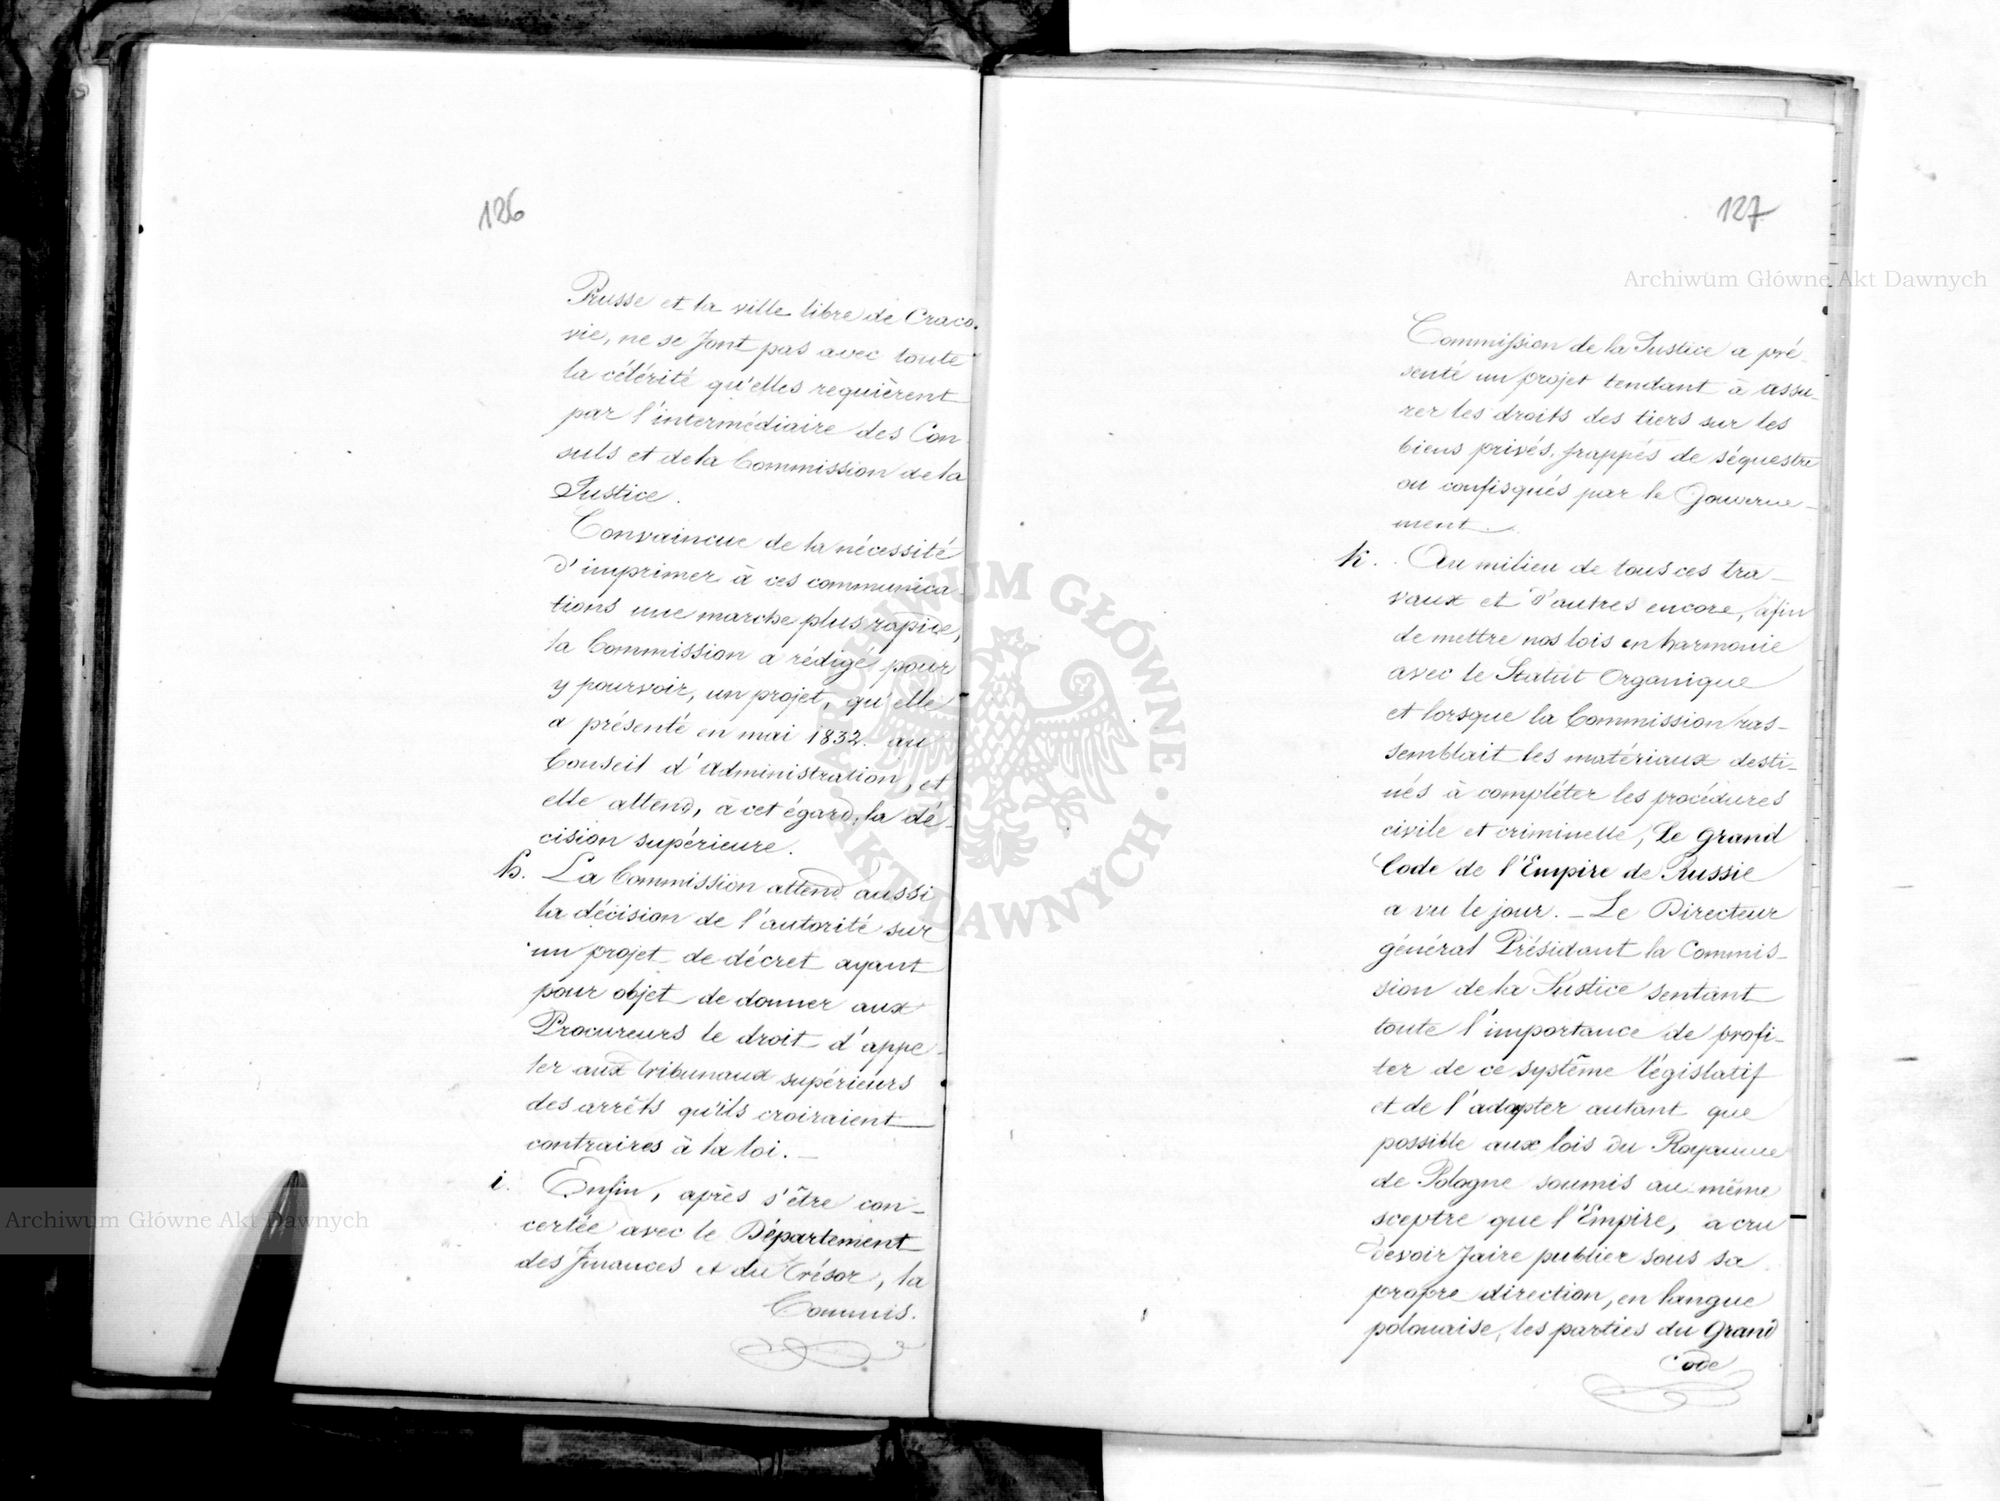 126
Prusse et la ville libre de Craco-
vie, ne se font pas avec toute
la célérité qu'elles requièrent
par l'intermédiaire des Con-
suls et de la Commission de la
Justice.
Convaincue de la nécessité
d'imprimer à ces communica-
tions une marche plus rapide,
la Commission a rédigé pour
y pourvoir, un projet, qu'elle
a présenté en mai 1832. au
Conseil d'Administration, et
elle attend, à cet égard, la dé-
cision supérieure.
h. La Commission attend aussi
la décision de l'autorité sur
un projet de décret ayant
pour objet de donner aux
Procureurs le droit d'appe-
ler aux tribunaux supérieurs
des arrêts qu'ils croiraient
contraires à la loi. —
i. Enfin, après s'être con-
certée avec le Département
des Finances et du Trésor, la
Commis.
127
Commission de la Justice a pré-
senté un projet tendant à assu-
rer les droits des tiers sur les
biens privés, frappés de séquestre
ou confisqués par le Gouverne-
ment.
k. Au milieu de tous ces tra-
vaux et d'autres encore, afin
de mettre nos lois en harmonie
avec le Statut Organique
et lorsque la Commission ras-
semblait les matériaux desti-
nés à compléter les procédures
civile et criminelle, Le Grand
Code de l'Empire de Russie
a vu le jour. — Le Directeur
général Présidant la Commis-
sion de la Justice sentant
toute l'importance de profi-
ter de ce système législatif
et de l'adapter autant que
possible aux lois du Royaume
de Pologne soumis au même
sceptre que l'Empire, a cru
devoir faire publier sous sa
propre direction, en langue
polonaise, les parties du Grand
Code
Archiwum Główne Akt Dawnych
Archiwum Główne Akt Dawnych
ARCHIWUM GŁÓWNE · AKT DAWNYCH ·